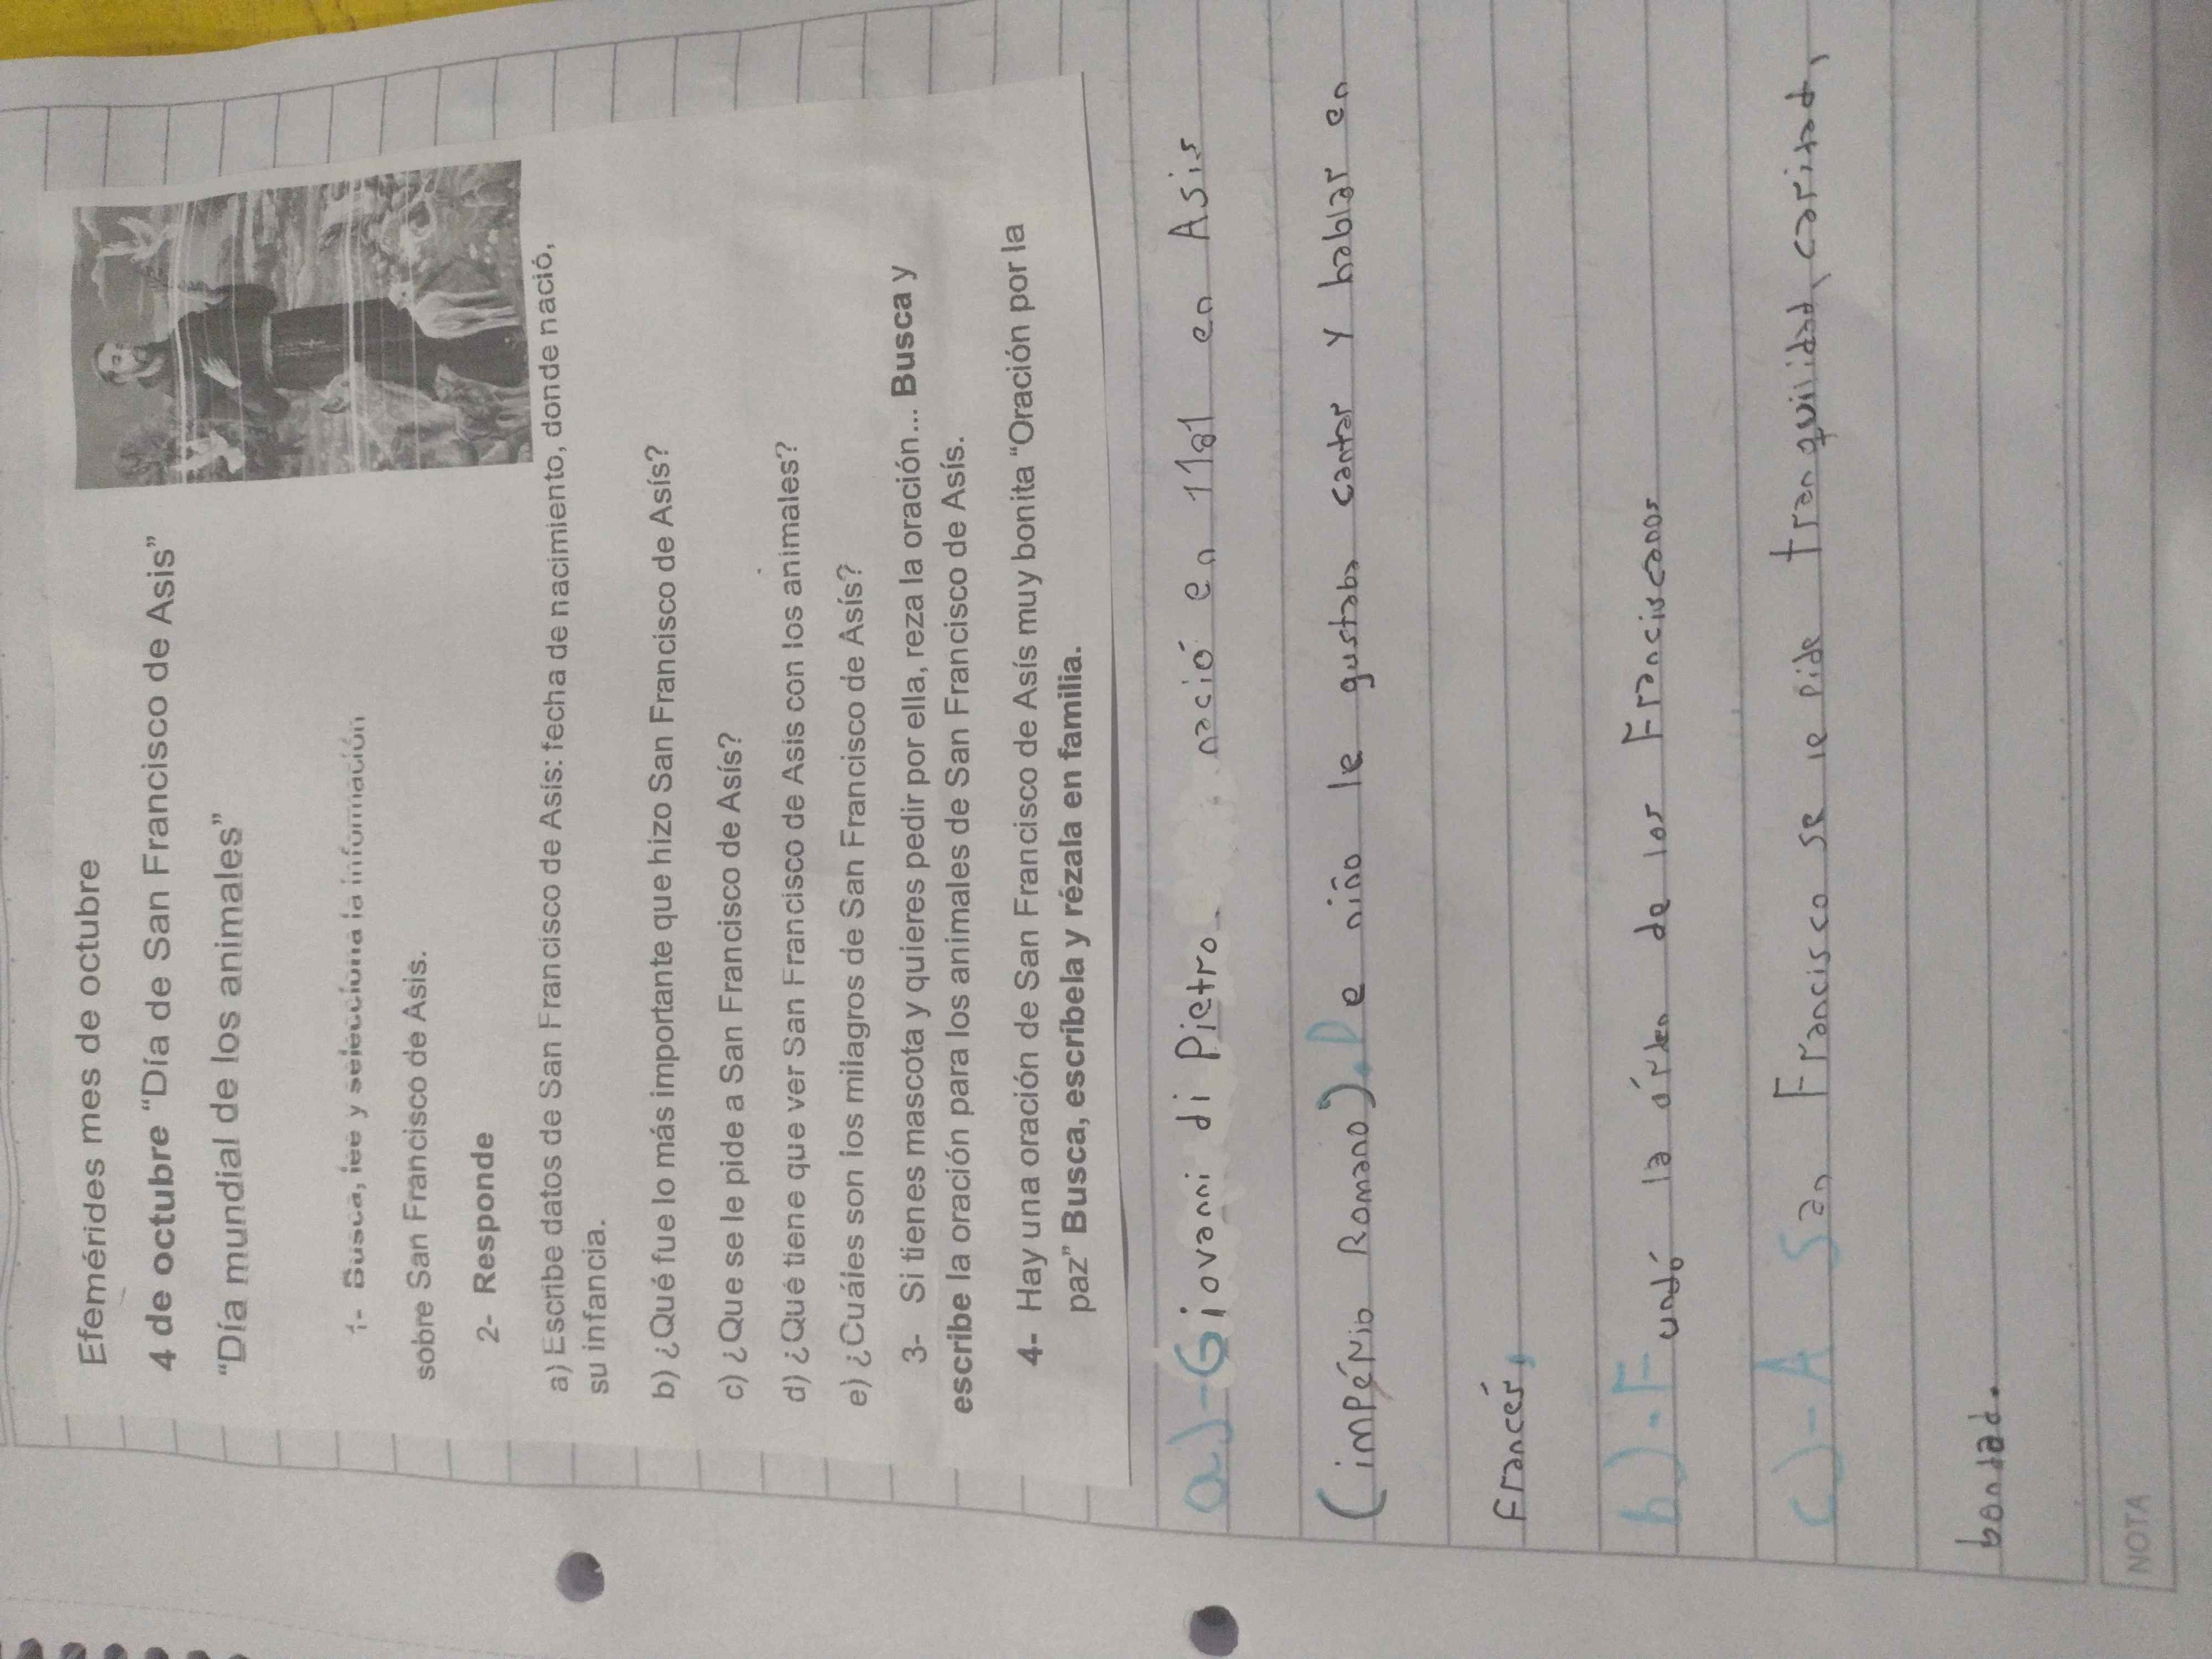 Efemérides mes de octubre
4 de octubre “Día de San Francisco de Asis”
“Día mundial de los animales”
1- Busca, lee y selecciona la información
sobre San Francisco de Asis.
2- Responde
a) Escribe datos de San Francisco de Asís: fecha de nacimiento, donde nació,
su infancia.
b) ¿Qué fue lo más importante que hizo San Francisco de Asís?
c) ¿Que se le pide a San Francisco de Asís?
d) ¿Qué tiene que ver San Francisco de Asis con los animales?
e) ¿Cuáles son los milagros de San Francisco de Asís?
3- Si tienes mascota y quieres pedir por ella, reza la oración... Busca y
escribe la oración para los animales de San Francisco de Asís.
4- Hay una oración de San Francisco de Asís muy bonita “Oración por la
paz” Busca, escríbela y rézala en familia.
a.)-Giovanni di Pietro nació en 1181 en Asis
(império Romano). De niño le gustaba cantar y hablar en
Francés,
b.)-Fundó la órden de los Franciscanos
c.)-A San Francisco se le pide tranquilidad, caridad,
bondad.
NOTA